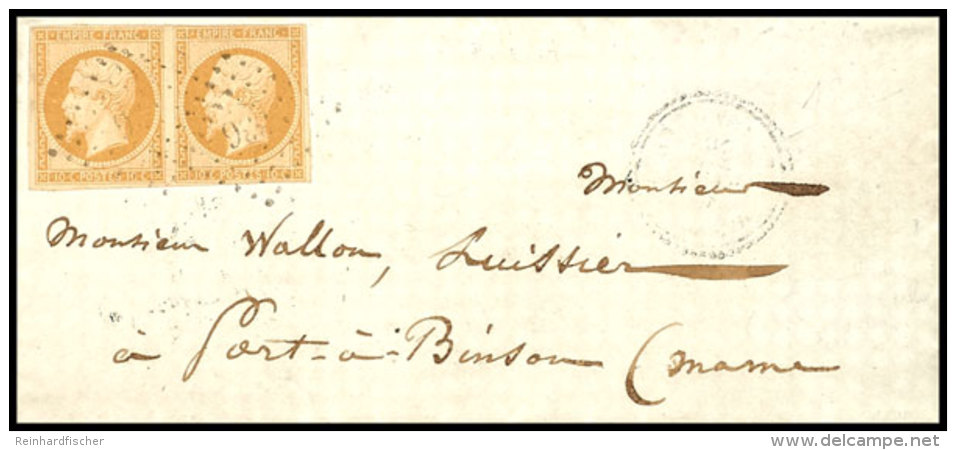 EMPIRE FRANC. EMPIRE FRANC.
10 C. POSTES 10 C. 10 C. POSTES 10 C.
Monsieur
Monsieur Wallon, huissier
à Port-à-Binson (marne
Reinhardfischer
delcampe.net